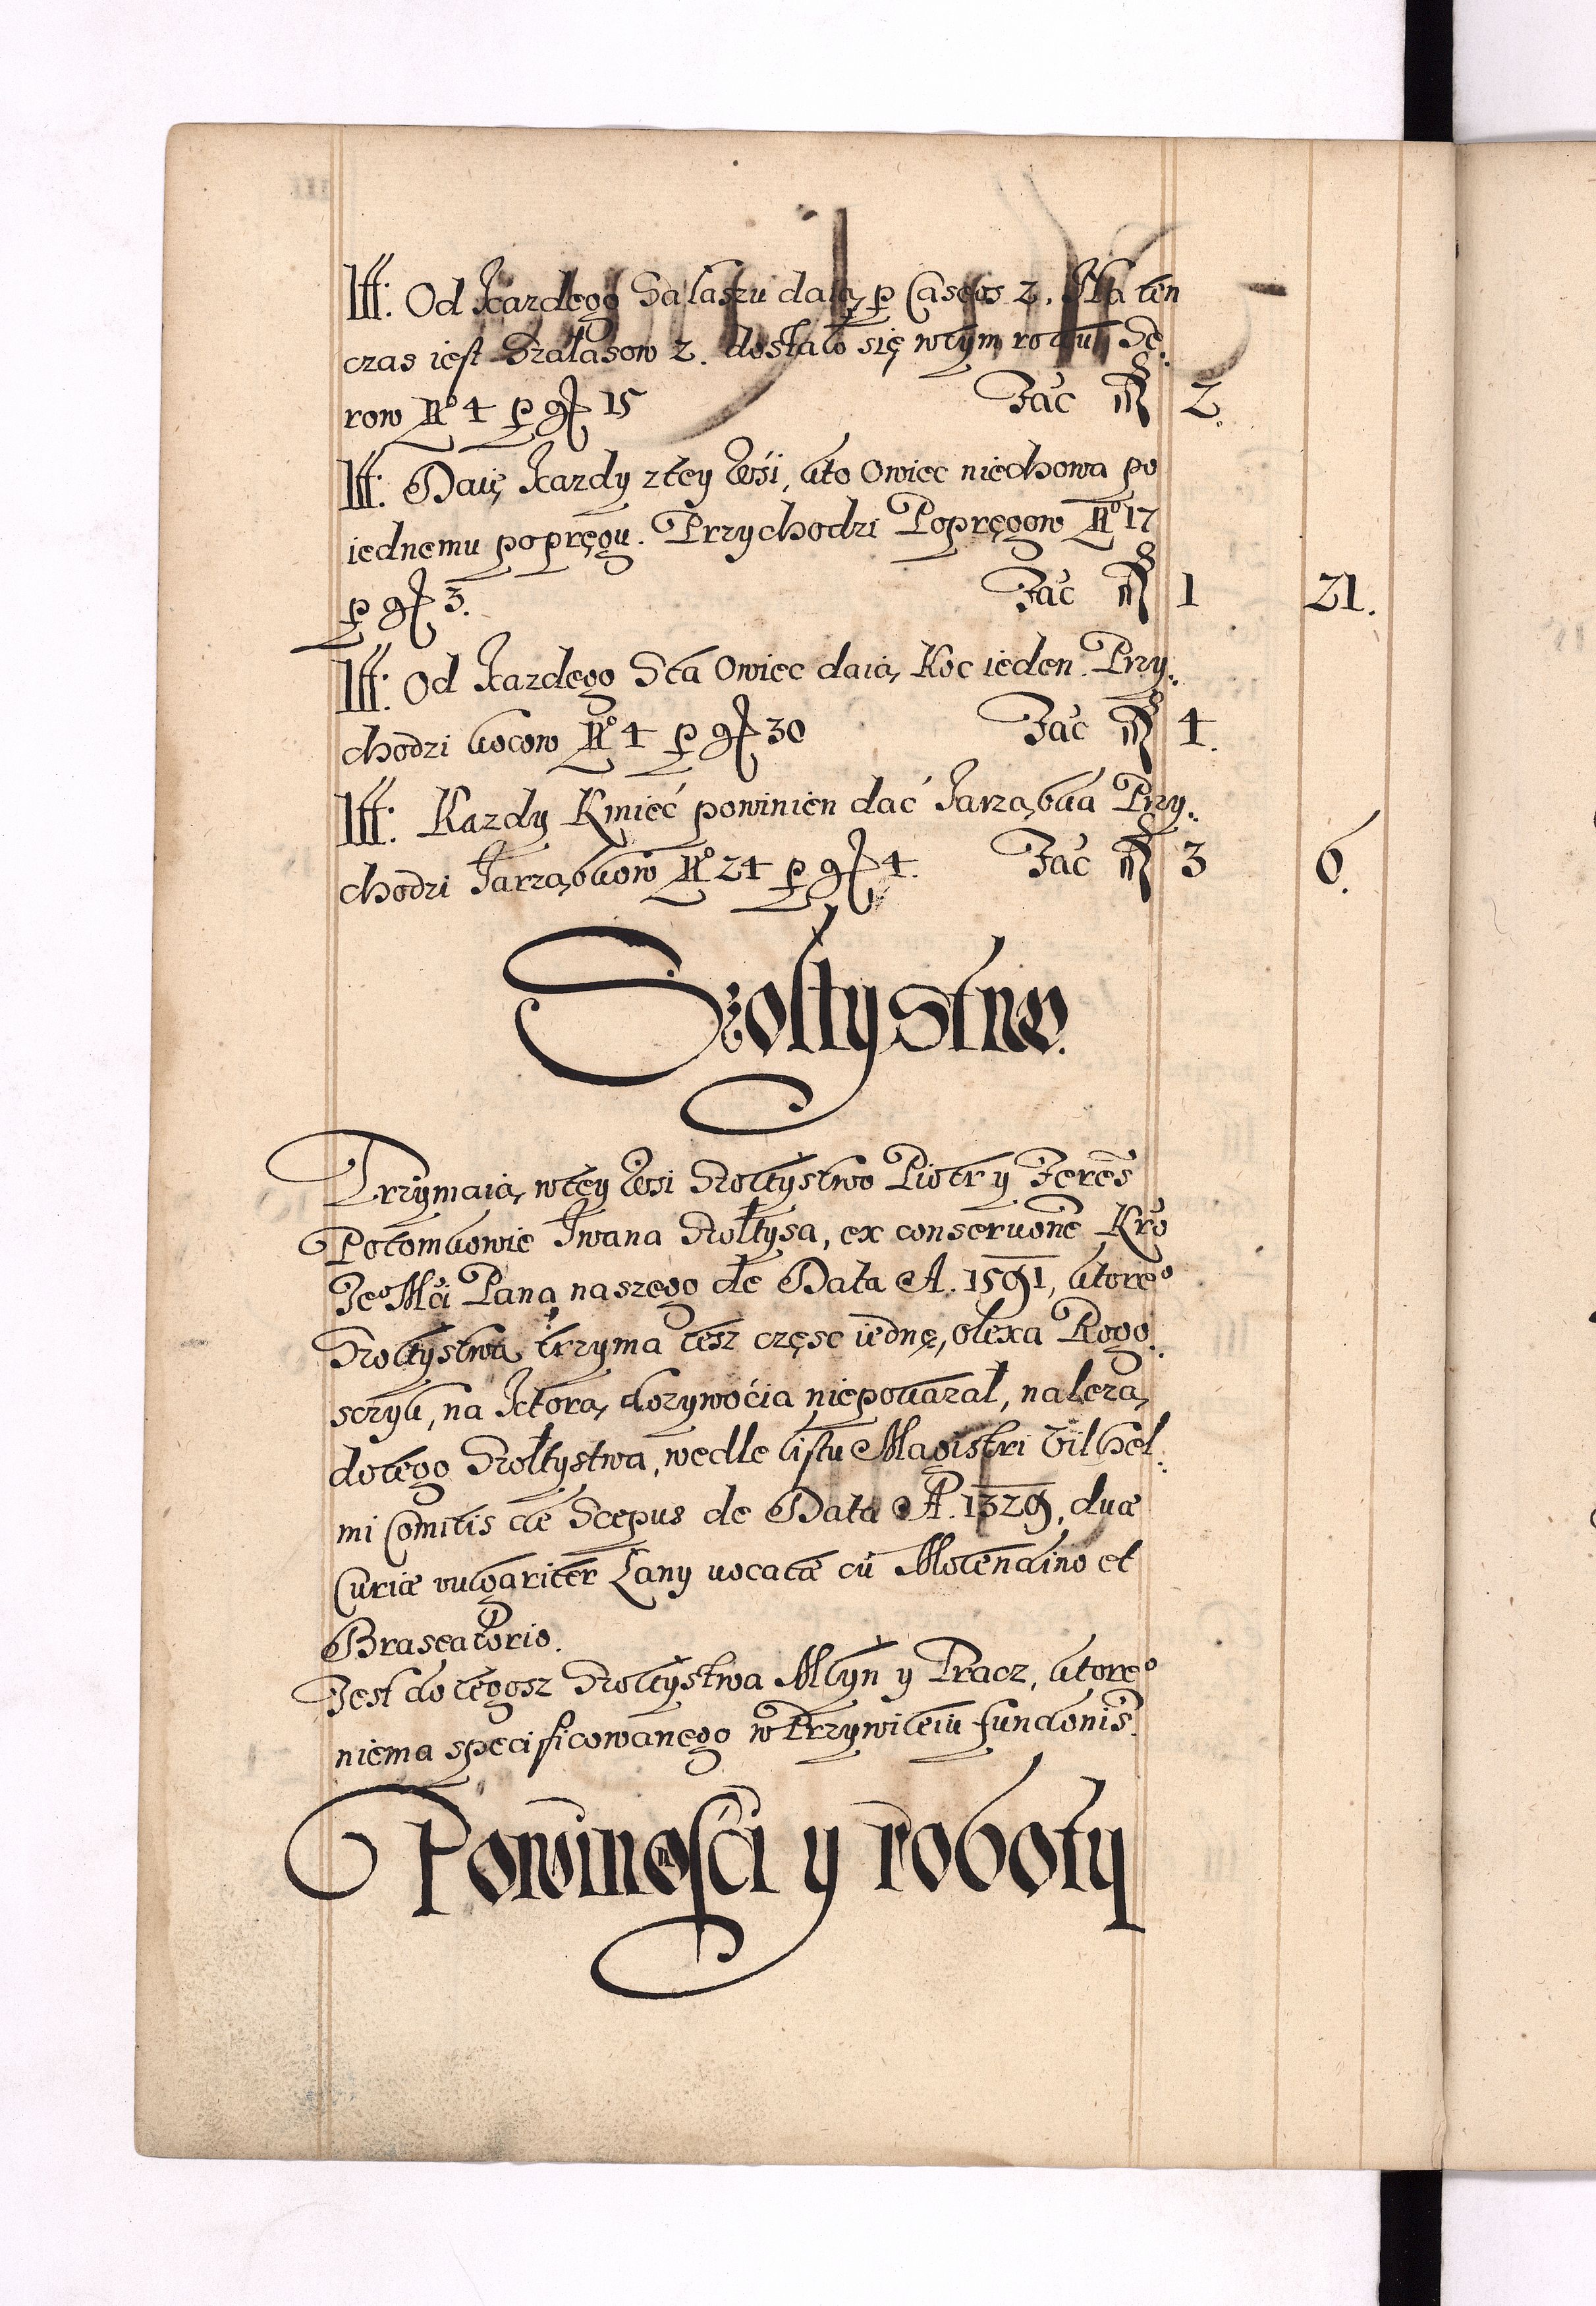 Itt: Od kazdego Salaszu daią p Caseos 2. Na ten
czas iest Szałasow 2. dostało się wtym roku Se
row No 4 p gr 15 Fac fl 2.
Itt: Daię kazdy ztey Wsi, kto Owiec niechowa po
iednemu popręgu. Przychodzi Popręgow No 17
p gr 3. Fac fl 1 21.
Itt: Od kazdego Sta Owiec daią Koc ieden. Przy:
chodzi kocow No 4 p gr 30 Fac fl 4.
Itt: Kazdy Kmieć powinien dać Jarząbka Przy:
chodzi Jarząbkow No 24 p gr 4. Fac fl 3 6.
Szołtystwo.
Trzymaią wtey Wsi Szołtystwo Piotr y Feres
Potomkowie Iwana Szołtysa, ex conseruone Kro
Jeo Mci Pana naszego de Data A. 1591, ktoreo
Szołtystwa trzyma tesz częsc iednę, olexa Rogo:
sczyk, na ktorą dozywocia niepokazał, nalezą
dotego Szołtystwa, wedle listu Magistri Vilhel:
mi Comitis de Scepus de Data A. 1329, duæ
Curiæ vulgariter Łany uocatæ cu Molendino et
Braseatorio.
Jest do tegosz Szołtystwa Młyn y Tracz, ktoreo
niema specificowanego w Przywileiu fundonis.
Powinności y roboty